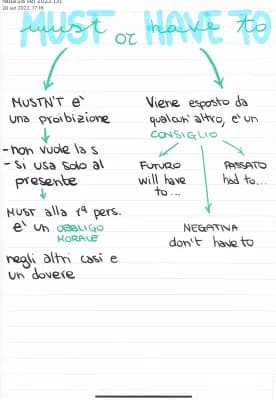 28 set 2022, 17:16
MUST or HAVE TO
must have to
MUSTN'T e'
una proibizione
- non vuole la s
- si usa solo al
presente
MUST alla 1ª pers.
e' un OBBLIGO
MORALE
negli altri casi e
un dovere
Viene esposto da
qualcun'altro, e'un
CONSIGLIO
FUTURO
will have
to...
PASSATO
had to...
NEGATIVA
don't have to